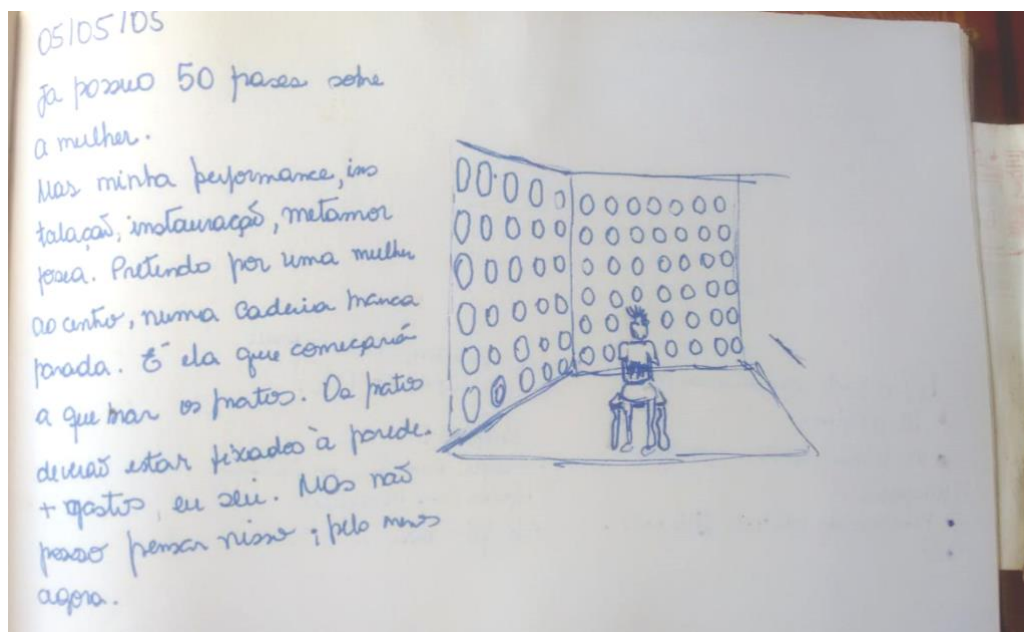 05/05/05
Ja possuo 50 frases sobre
a mulher.
Mas minha performance, ins
talação, instauração, metamor
fosea. Pretendo por uma mulher
ao centro, numa cadeira branca
parada. É ela que começará
a quebrar os pratos. Os pratos
deverão estar fixados à parede.
+ gastos, eu sei. Mas não
posso pensar nisso; pelo menos
agora.